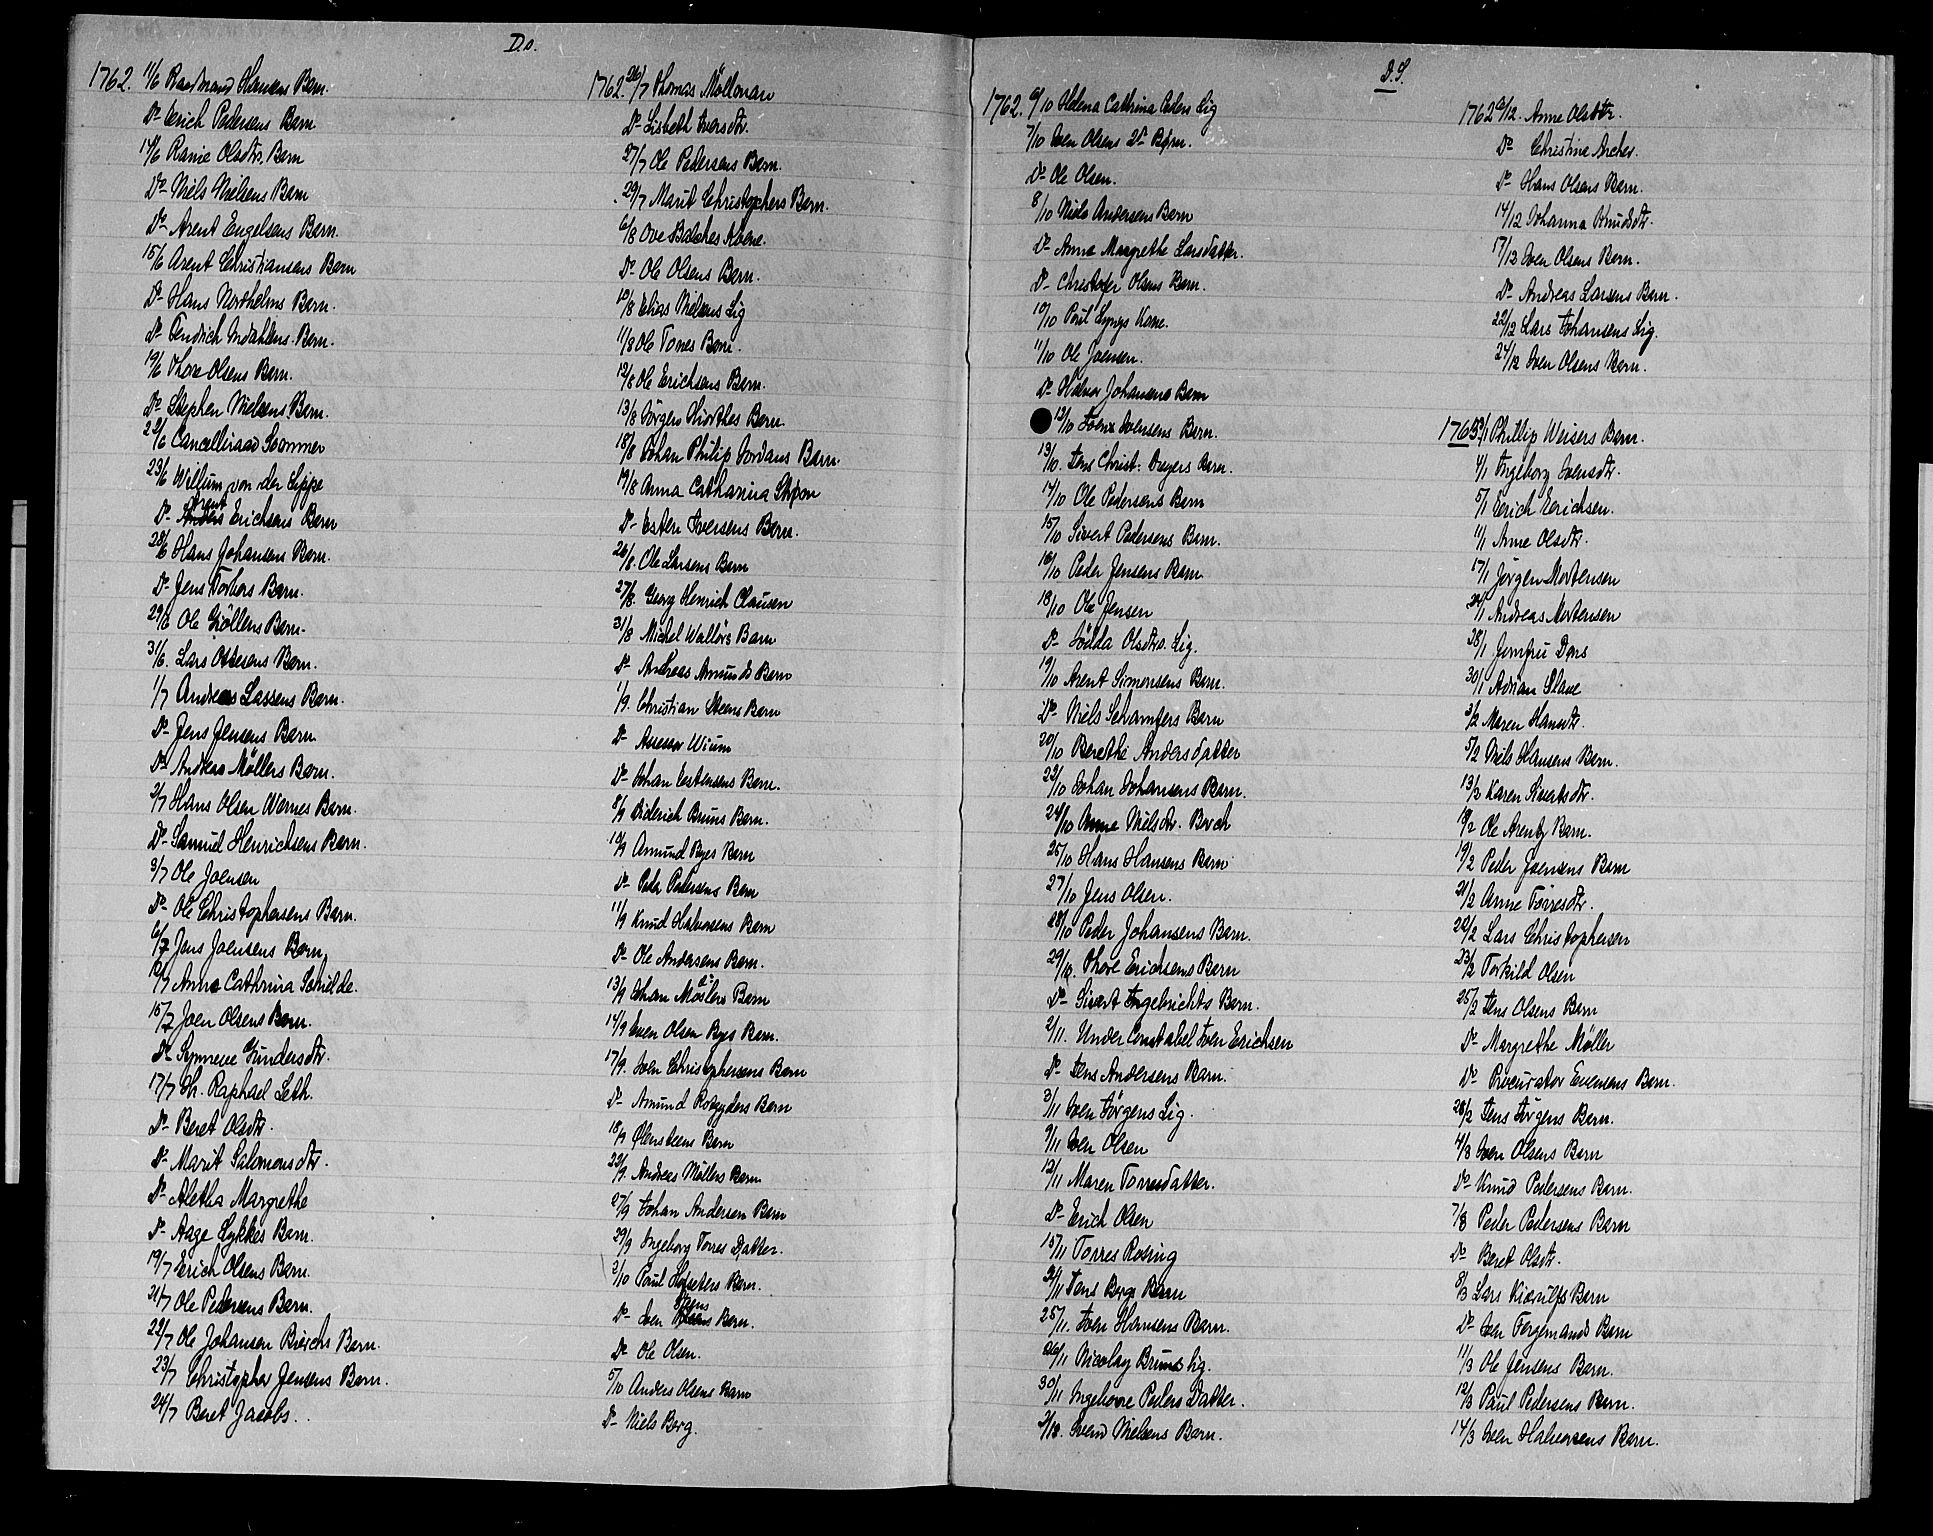 D.o.
1762. 11/6 Hansens Barn.
Do Erich Pedersens Barn
14/6 Ranie Olsdtr. Barn
Do Niels Nielsens Barn
Do Arent Engelsens Barn.
15/6 Arent Christiansens Barn
Do Hans Nordholms Barn.
Do Hendrich Barn.
19/6 Thore Olsens Barn.
Do Stephen Nielsens Barn.
22/6 Cancelliraad Sommer
23/6 Willum von der Lippe
Do Arent Erichsens Barn
28/6 Hans Johansens Barn.
Do Jens Barn.
29/6 Ole Gröllens Barn.
31/6. Lars Ottesens Barn.
1/7 Andreas Lassens Barn.
Do Jens Jensens Barn
Do Andreas Möllers Barn.
2/7 Hans Olsen Wernes Barn.
Do Samuel Henrichsens Barn.
3/7 Ole Joensen
Do Ole Christophersens Barn.
6/7 Jens Joensens Barn
12/7 Anne Cathrina Schilde.
15/7 Joen Olsens Barn.
Do Synneve Gundersdtr.
17/7 Hr. Raphael Leth.
Do Beret Olsdtr.
Do Marit Salomonsdtr.
Do Aletha Margrethe
Do Aage Lykkes Barn.
19/7 Erich Olsens Barn.
21/7 Ole Pedersens Barn.
22/7 Ole Johansen Bierchs Barn.
23/7 Christopher Jensens Barn.
24/7 Beret Jacobs.
1762. 26/7 Thomas Möllman
Do Lisbeth Iversdtr.
27/7 Ole Pedersens Barn.
29/7 Marit Christophers Barn.
6/8 Ove Balches Kone.
Do Ole Olsens Barn.
10/8 Elias Nielsens Lig
11/8 Ole Tones Barn.
12/8 Ole Erichsens Barn.
13/8 Jörgen Hiorthes Barn
18/8 Johan Philip Jordans Barn.
19/8 Anna Catharina Strøm
Do Esten Iversens Barn.
26/8. Ole Larsens Barn
27/8. Georg Henrich Clausen
31/8 Michel Wallörs Barn
Do Andreas Amunds Barn
1/9. Christian Steens Barn
Do Assessor Wium
Do Johan Estensens Barn.
8/9 Diderich Bruns Barn.
10/9 Amund Byes Barn
Do Peder Pedersens Barn
11/9 Knud Halvorsens Barn
Do Ole Andersens Barn.
13/9 Johan Möslers Barn
14/9 Sven Olsen Byes Barn.
17/9. Iver Christophersens Barn
Do Amund Barn
18/9 Ølensteens Barn
22/9. Andreas Möllers Barn
27/9 Johan Andersen Barn
29/9 Ingeborg Torres Datter.
2/10 Poul Hofseters Barn.
Do Iver Steens Barn.
Do Ole Olsen.
5/10 Anders Olsens Barn
Do Niels Berg.
D.S.
1762. 6/10 Helena Cathrina Lig
7/10 Iver Olsens 2de Børn.
Do Ole Olsen.
8/10 Niels Andersens Barn
Do Anna Margrethe Larsdatter.
Do Christofer Olsens Barn.
10/10 Poul Lyngs Kone.
11/10 Ole Joensen.
Do Halvor Johansens Barn
12/10 Svensens Barn.
13/10. Jens Christ: Dreyers Barn.
14/10 Ole Pedersens Barn
15/10 Sivert Pedersens Barn.
16/10 Peder Jensens Barn
18/10 Ole Jensen
Do Olsdtrs. Lig.
19/10 Arent Simonsens Barn.
Do Niels Schamfers Barn
20/10 Berethe Andersdatter
22/10 Johan Johansens Barn.
24/10 Anne Nielsdtr. Berch
25/10 Hans Hansens Barn
27/10 Jens Olsen.
28/10 Peder Johansens Barn.
29/10. Thore Erichsens Barn
Do Sivert Ingebrichts Barn.
2/11. Under Constabel Iver Erichsen
Do Jens Andersens Barn.
3/11 Iver Jörgens Lig.
9/11 Iver Olsen
12/11 Maren Torresdatter.
Do Erich Olsen
15/11 Torres Rosing
24/11 Jens Bergs Barn
25/11. Iver Hansens Barn.
26/11 Nicolay Bruns Lig.
30/11 Ingeborre Peders Datter.
2/12. Svend Nielsens Barn.
1762 6/12. Anne Olsdtr.
Do Christine Archer.
Do Hans Olsens Barn.
14/12 Johanna Knudsdtr.
17/12 Iver Olsens Barn.
Do Andreas Larsens Barn.
22/12 Lars Johansens Lig.
24/12 Iver Olsens Barn.
1763. 3/1 Phillip Weisers Barn.
4/1 Ingeborg Svensdtr.
5/1 Erich Erichsen.
11/1 Anne Olsdtr.
17/1 Jörgen Mortensen
24/1 Andreas Mortensen
28/1 Jomfru Dons
30/1 Adrian Slave
3/2 Maren Hansdtr.
5/2 Niels Hansens Barn.
13/2 Karen Sivertsdtr.
18/2 Ole Arentz Barn.
19/2 Peder Joensens Barn
21/2 Anne Torresdtr.
22/2 Lars Christophersen
23/2 Torkild Olsen
25/2 Jens Olsens Barn
Do Margrethe Möller
Do Procurator Evensens Barn.
28/2 Jens Jörgens Barn.
4/3 Iver Olsens Barn
Do Knud Pedersens Barn.
7/3 Peder Pedersens Barn
Do Beret Olsdtr.
8/3 Lars Kierulfs Barn
Do Iver Fergemands Barn
11/3 Ole Jensens Barn.
12/3 Paul Pedersens Barn.
14/3 Iver Halvorsens Barn.